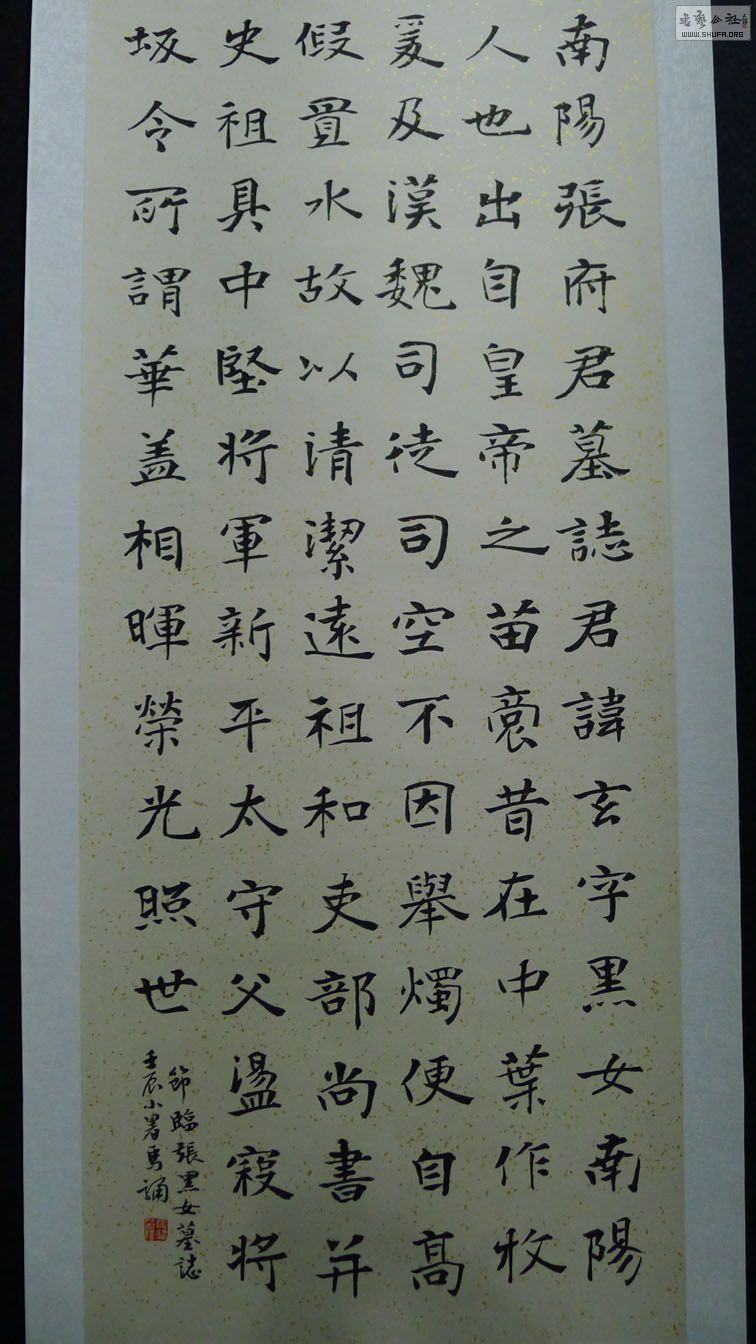 南陽張府君墓誌君諱玄字黑女南陽
人也出自皇帝之苗裔昔在中葉作牧
爰及漢魏司徒司空不因舉燭便自高
假置水故以清潔遠祖和吏部尚書并
史祖具中堅將軍新平太守父盪寇將
坂令所謂華盖相暉榮光照世
節臨張黑女墓誌
壬辰小暑誦
書藝公社
WWW.SHUFA.ORG